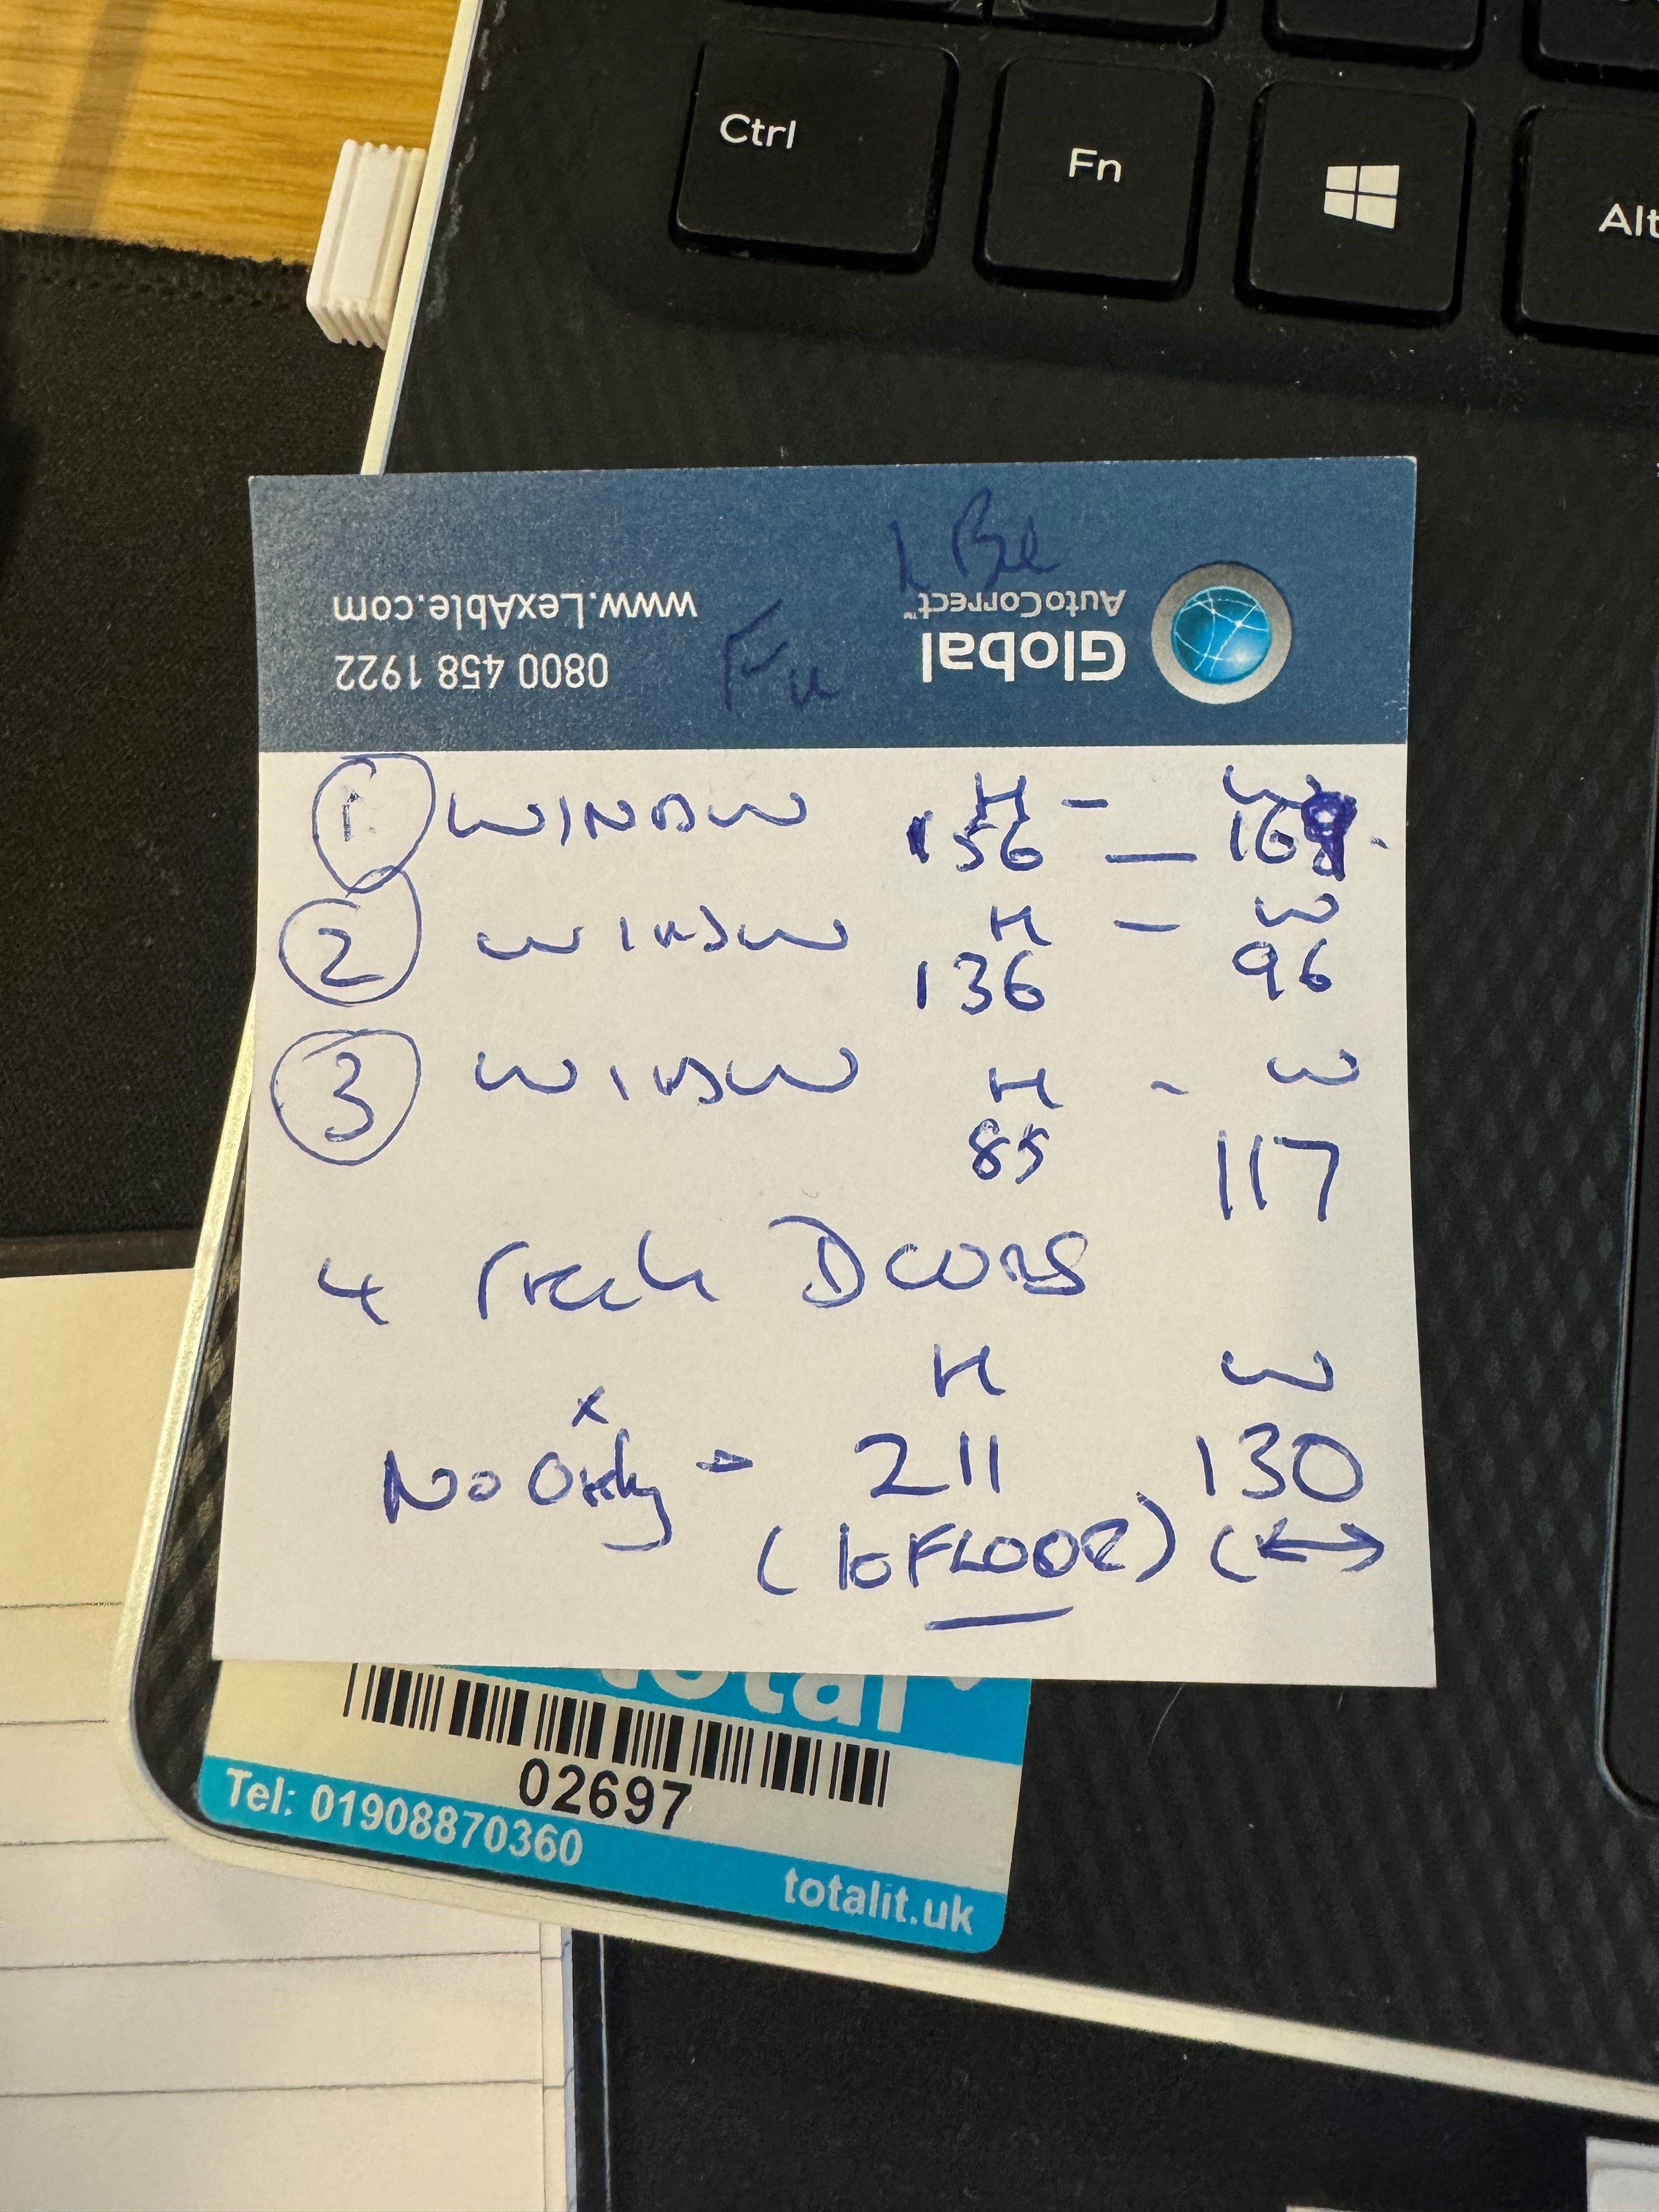 Ctrl Fn Alt
www.LexAble.com
0800 458 1922
Global
AutoCorrect™
Fu
1. WINDOW H - W
156 — 169.
2 WINDOW H - W
136 96
3 WINDOW H - W
85 117
4 French DOORS
H W
x
No Only - 211 130
(to FLOOR) (↔
total
02697
Tel: 01908870360
totalit.uk